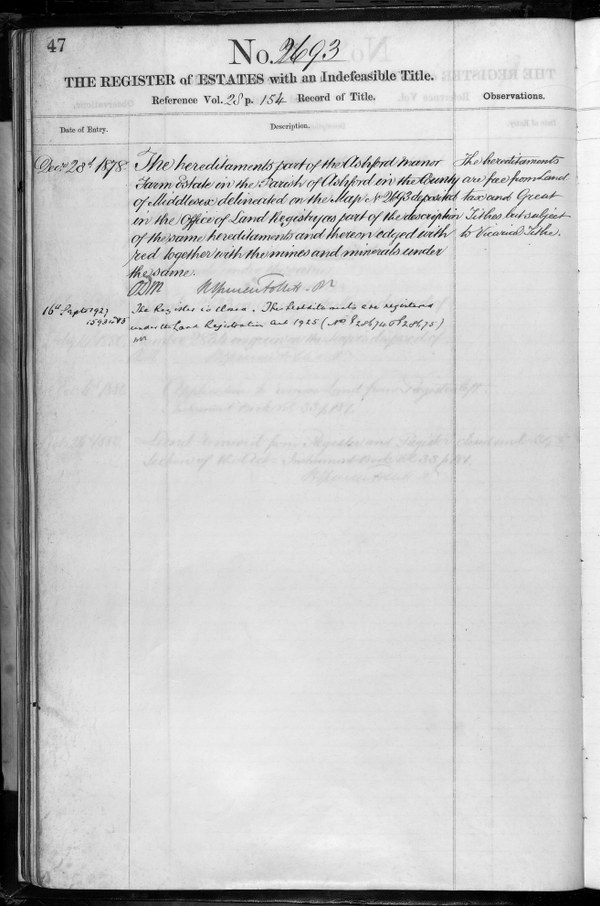 47
No. 2693
THE REGISTER of ESTATES with an Indefeasible Title.
Reference Vol. 28 p. 154 Record of Title.
Observations.
Date of Entry.
Description.
Decr 28th 1878.
The hereditaments part of the Ashford Manor
Farm Estate in the Parish of Ashford in the County
of Middlesex delineated on the Map No 2693 deposited
in the Office of Land Registry as part of the description
of the same hereditaments and thereon edged with
red together with the mines and minerals under
the same.
The hereditaments
are free from Land
tax and Great
Tithes but subject
to Vicarial Tithe.
16th Sept 1927
The Register is closed. The hereditaments are registered
under the Land Registration Act 1925 (Nos P28674 & P28675)